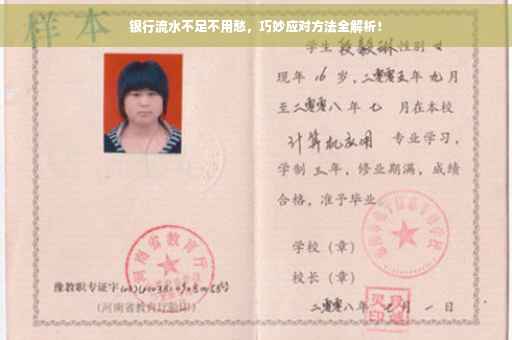 银行流水不足不用愁，巧妙应对方法全解析！
样本
学生段毅琳性别女
现年16岁，二零零五年九月
至二零零八年七月在本校
计算机应用专业学习，
学制三年，修业期满，成绩
合格，准予毕业
学校（章）
校长（章）
二零零八年七月一日
河南省教育厅
豫教职专证字
（河南省教育厅验印）